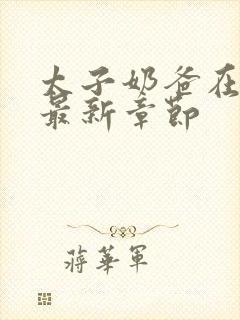 太子奶爸在
最新章節
蔣華軍